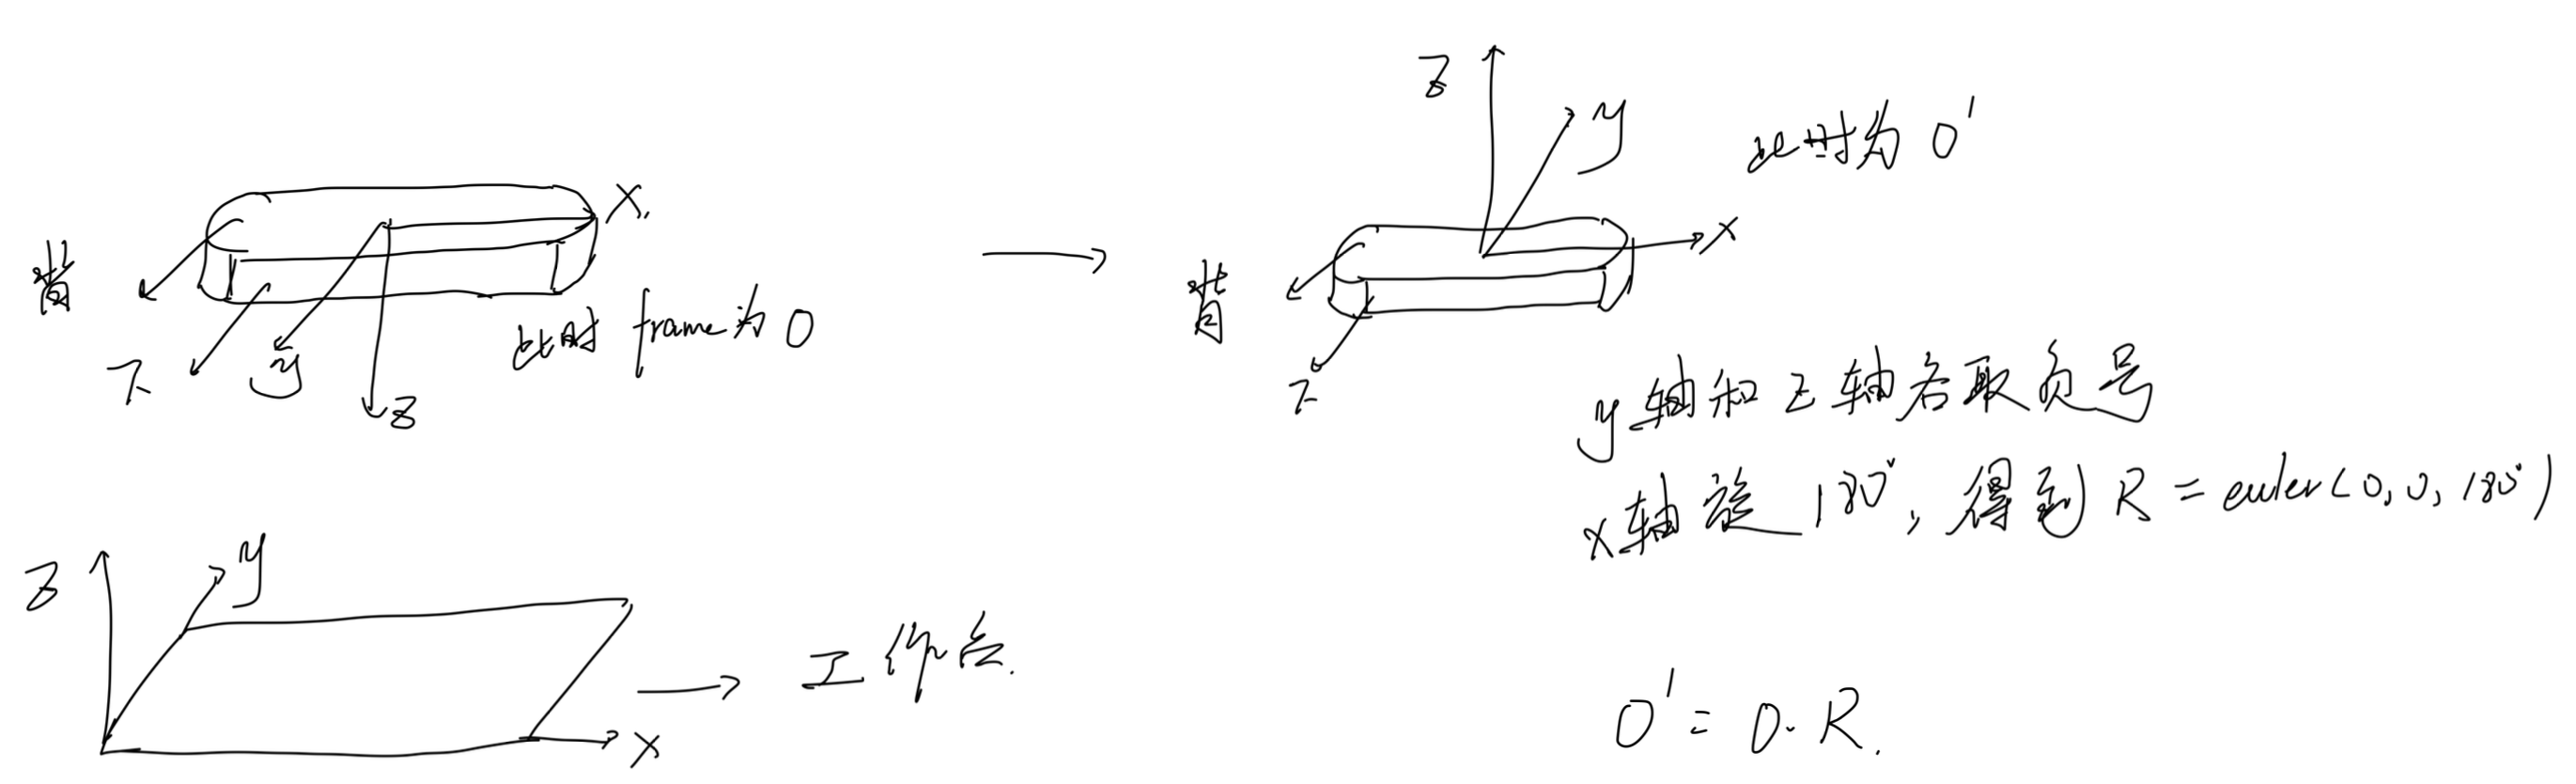 X.
背
下
y
z
此时 frame为 O
z
y
x
此时为 O'
背
下
y轴和z轴各取负号
x轴旋180°, 得到 R = euler(0, 0, 180°)
z
y
x
工作台.
O' = O·R.